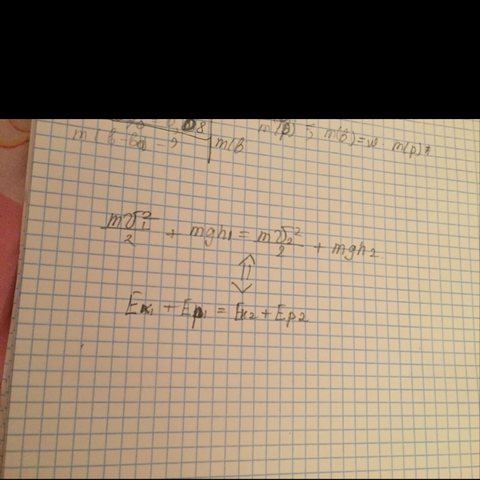 m(в-ва) = ? | m(в
m(p) ; m(в)=w m(p)*
mv₁²/2 + mgh₁ = mv₂²/2 + mgh₂
Eк₁ + Ep₁ = Eк₂ + Ep₂